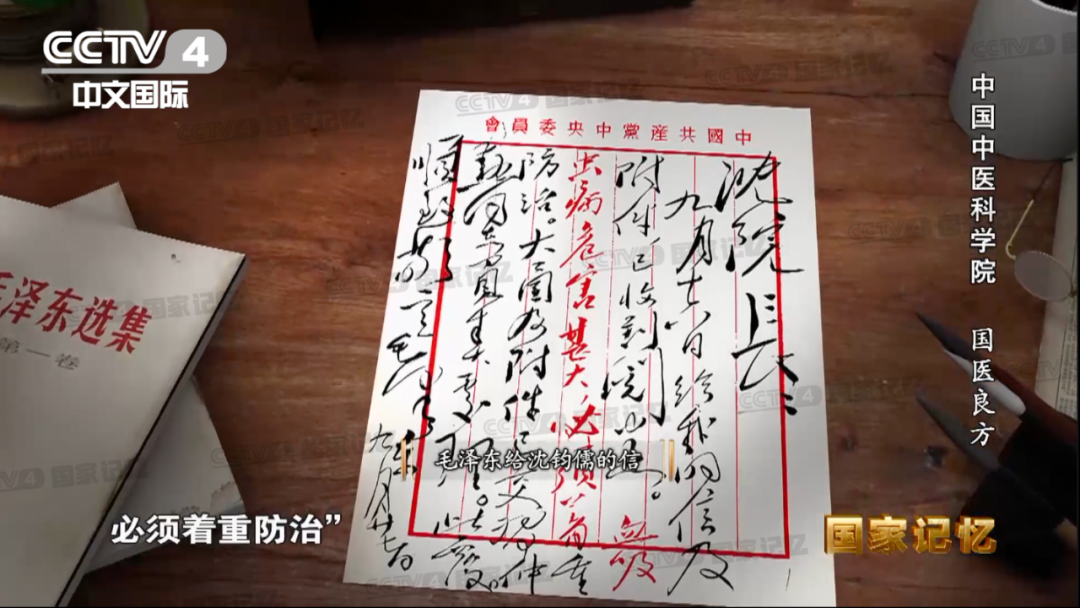 CCTV 4
中文国际
中国中医科学院 国医良方
中國共産黨中央委員會
沈院长：
九月十六日给我的信及
附件，已收到阅悉。血吸
虫病危害甚大，必须着重
防治。大函及附件已交习仲
勋同志负责处理。此复。
顺致敬意
毛泽东
九月廿七日
毛泽东选集
第一卷
毛泽东给沈钧儒的信
必须着重防治”
国家记忆